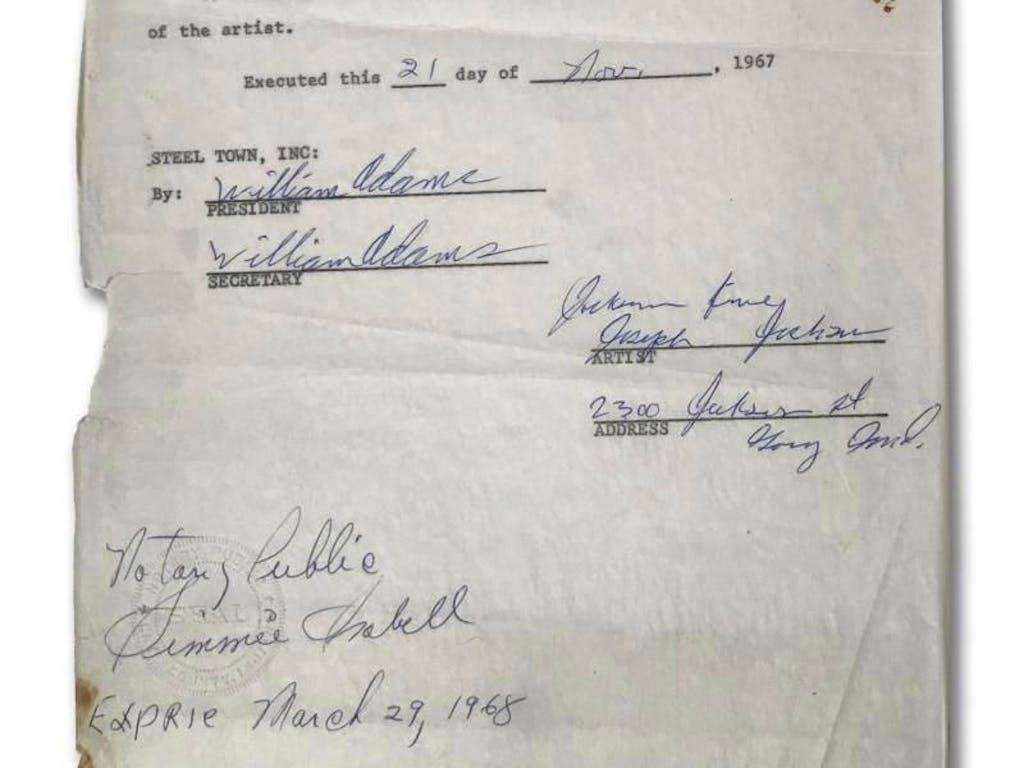 of the artist.
Executed this 21 day of Nov. , 1967
STEEL TOWN, INC:
By: William Adams
PRESIDENT
William Adams
SECRETARY
Jackson Five
Joseph Jackson
ARTIST
2300 Jackson St
ADDRESS
Gary Ind.
Notary Public
SEAL
Simmee Isabell
Exprie March 29, 1968